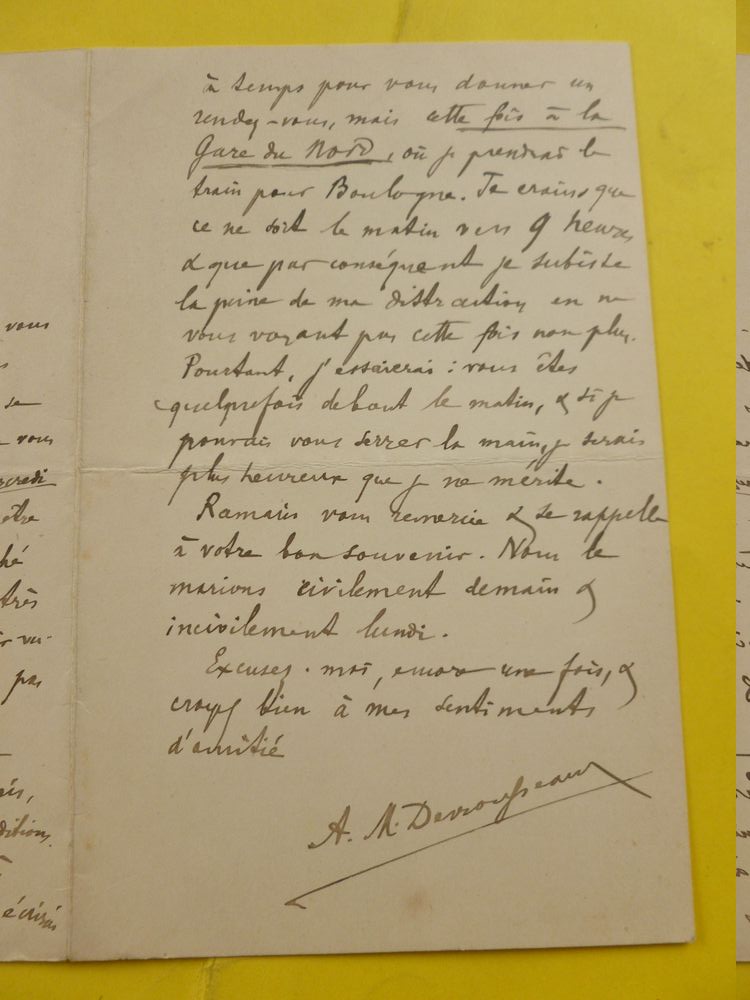 à temps pour vous donner un
rendez-vous, mais cette fois à la
Gare du Nord, où je prendrai le
train pour Boulogne. Je crains que
ce ne soit le matin vers 9 heures
& que par conséquent je subisse
la peine de ma distraction en ne
vous voyant pas cette fois non plus.
Pourtant, j'essaierai : vous êtes
quelquefois debout le matin, & si je
pouvais vous serrer la main, je serais
plus heureux que je ne mérite.
vous remercie & se rappelle
à votre bon souvenir. Nous le
marions civilement demain &
incivilement lundi.
Excusez-moi, encore une fois, &
croyez bien à mes sentiments
d'amitié
A. M. Desrousseaux
vous
se
vous
être
très
pas